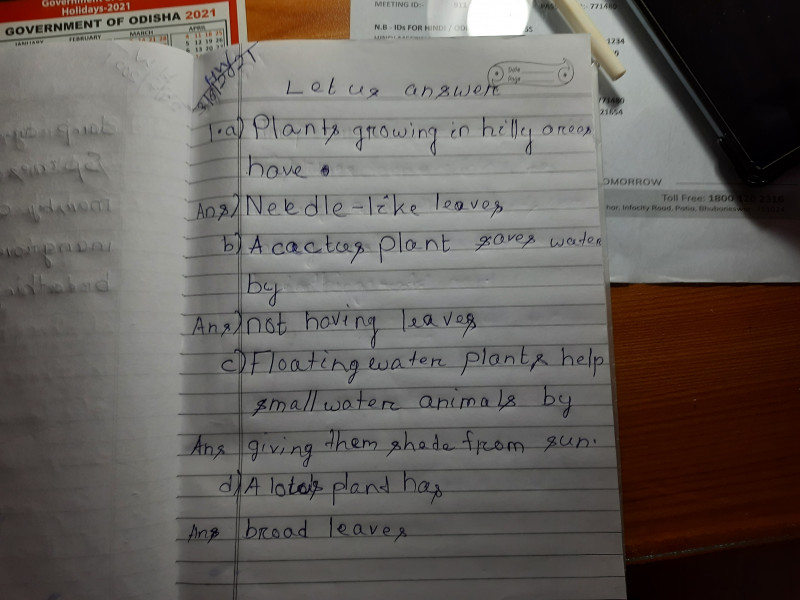 Government
Holidays-2021
GOVERNMENT OF ODISHA 2021
JANUARY FEBRUARY MARCH APRIL
MEETING ID:- 911
771460
N.B - IDs FOR HINDI / OD
1234
771460
21654
OMORROW
Toll Free: 1800
Infocity Road, Patia, Bhubaneswar
Date
Page
Let us answer
1.a) Plants growing in hilly areas
have
Ans) Needle-like leaves
b) A cactus plant saves water
by
Ans) not having leaves
c) Floating water plants help
small water animals by
Ans giving them shade from sun.
d) A lotus plant has
Ans broad leaves